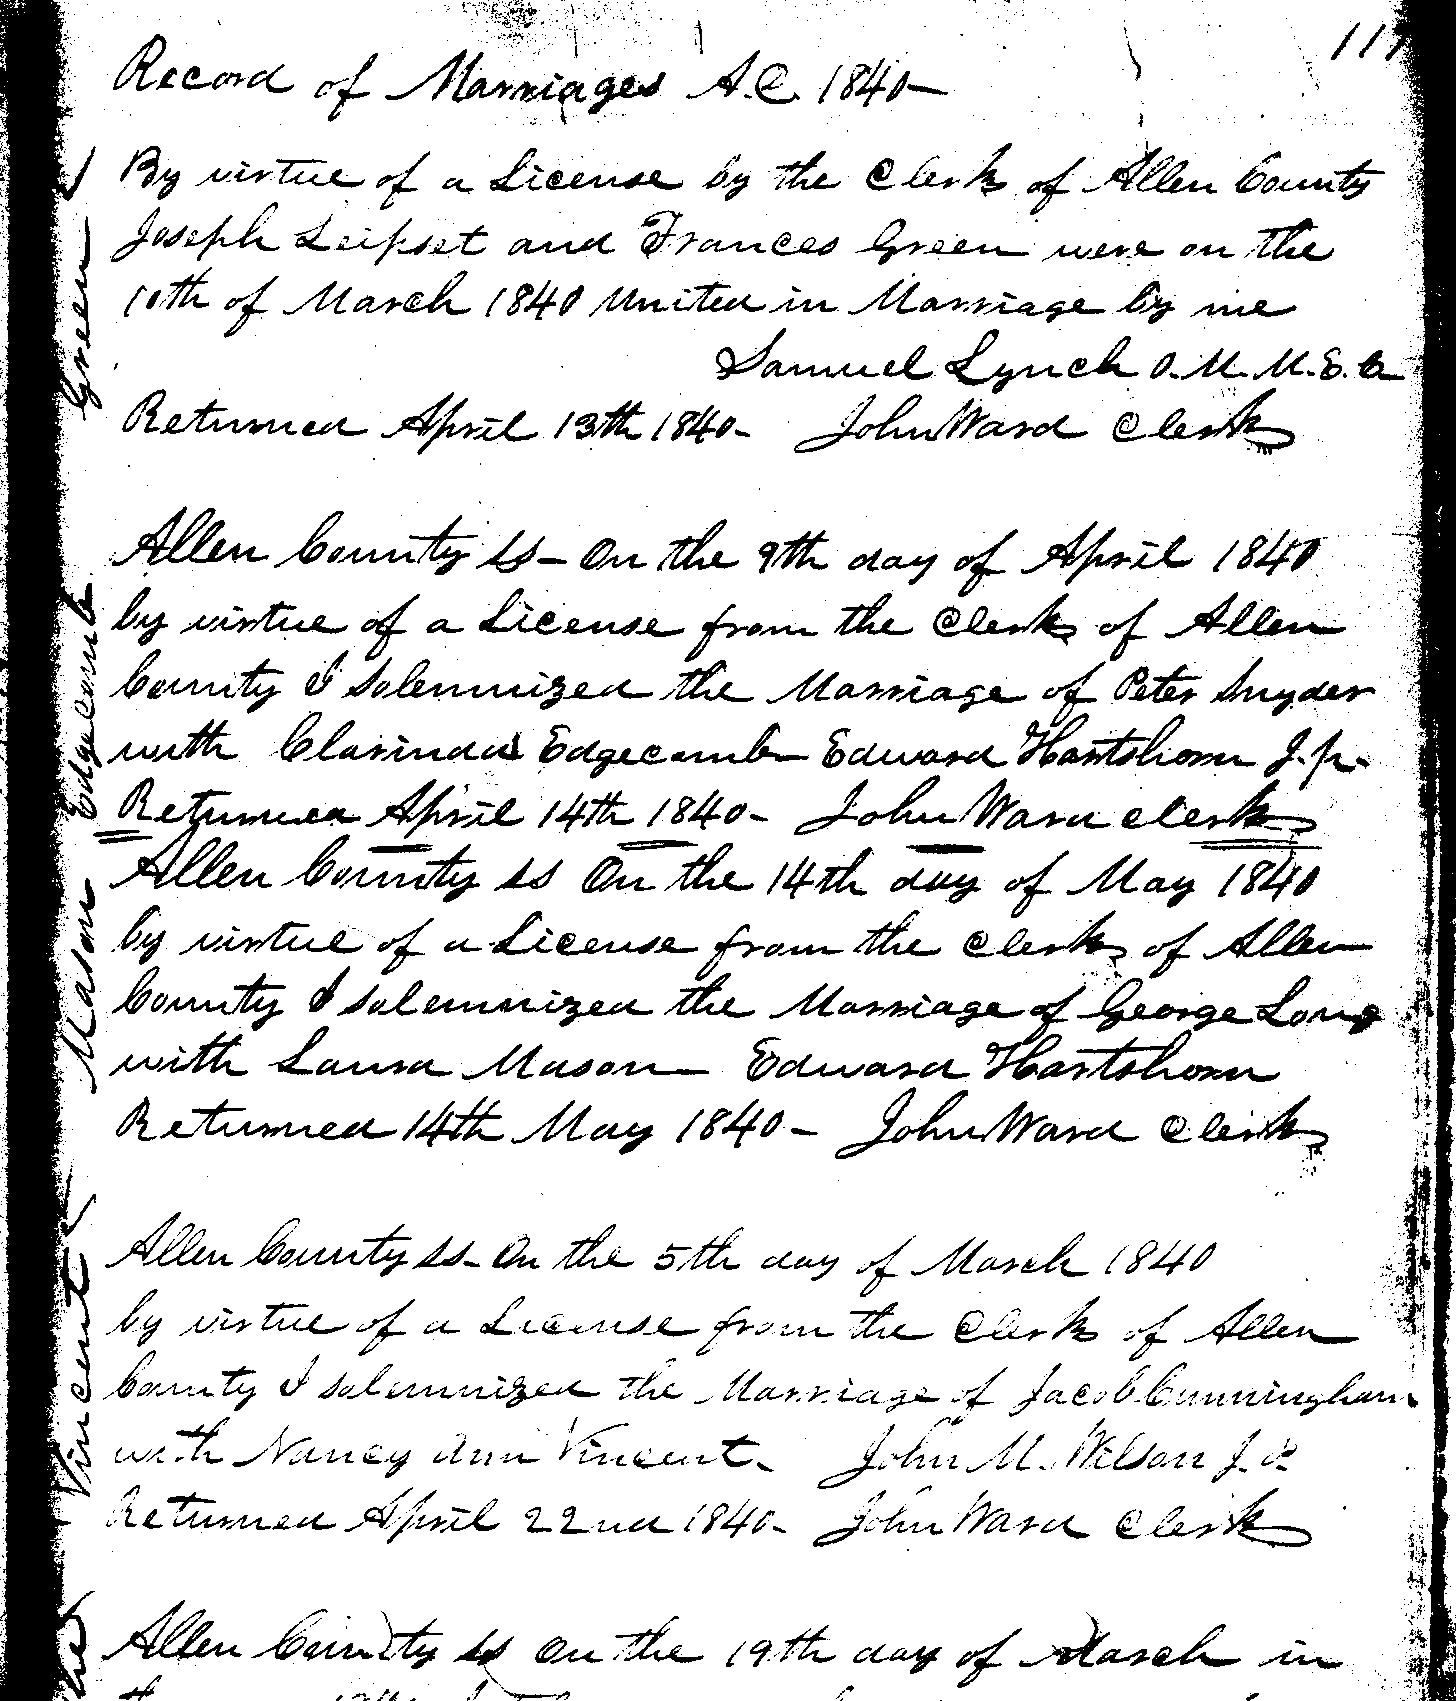 117
Record of Marriages A.C. 1840-
By virtue of a License by the Clerk of Allen County
Joseph Leipset and Frances Green were on the
10th of March 1840 United in Marriage by me
Samuel Lynch O.M.M.E.C
Returned April 13th 1840- John Ward Clerk
Green
Allen County ss- On the 9th day of April 1840
by virtue of a License from the Clerk of Allen
County I solemnized the Marriage of Peter Snyder
with Clarinda Edgecomb Edward Hartshorn J.p.
Returned April 14th 1840- John Ward Clerk
Edgecomb
Allen County ss On the 14th day of May 1840
by virtue of a License from the Clerk of Allen
County I solemnized the Marriage of George Long
with Laura Mason Edward Hartshorn
Returned 14th May 1840- John Ward Clerk
Mason
Allen County ss- On the 5th day of March 1840
by virtue of a License from the Clerk of Allen
County I solemnized the Marriage of Jacob Cunningham
with Nancy Ann Vincent- John M. Wilson J.P.
Returned April 22nd 1840- John Ward Clerk
Vincent
Allen County ss On the 19th day of March in